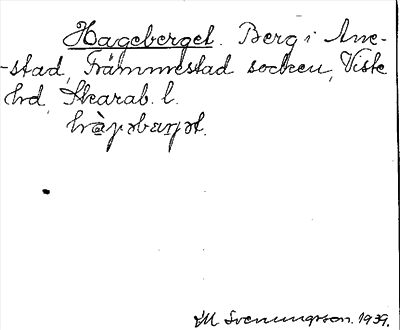 Hageberget. Berg i Ane-
-stad, Främmestad socken, Viste
hd, Skarab. l.
Svenungsson. 1939.